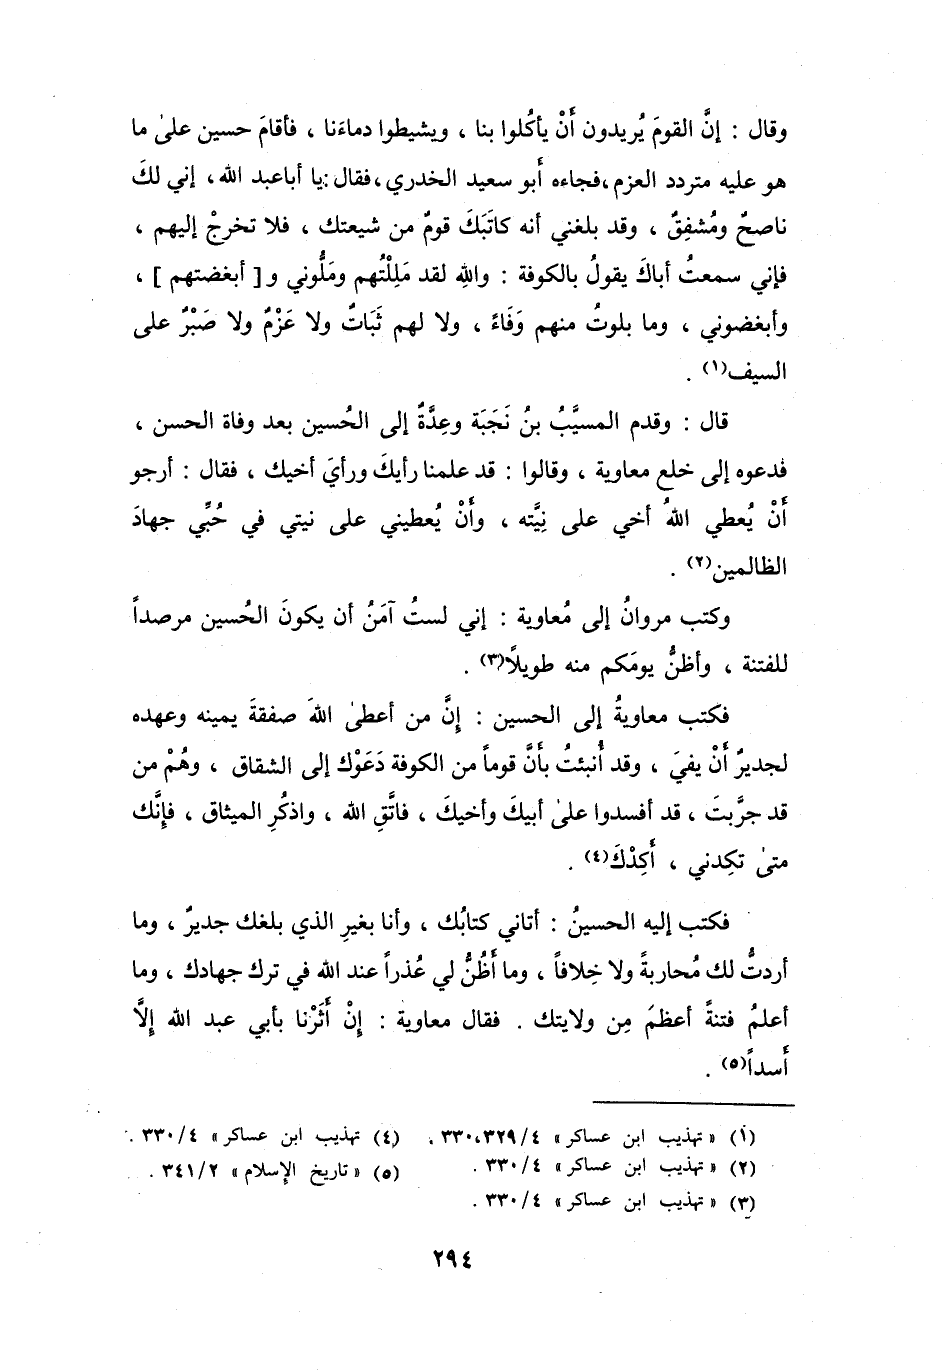 وقال : إنَّ القومَ يُريدون أَنْ يأكُلوا بنا ، ويشيطوا دماءَنا ، فأقامَ حسين علىٰ ما
هو عليه متردد العزم ،فجاءه أَبو سعيد الخدري ،فقال :يا أباعبد الله ، إني لكَ
ناصحٌ ومُشفِقٌ ، وقد بلغني أنه كاتَبَكَ قومٌ من شيعتك ، فلا تخرجْ إليهم ،
فإني سمعتُ أباكَ يقولُ بالكوفة : واللهِ لقد مَلِلْتُهم ومَلُّوني و[ أبغضتهم ] ،
وأبغضوني ، وما بلوتُ منهم وَفَاءً ، ولا لهم ثَبَاتٌ ولا عَزْمٌ ولا صَبْرٌ على
السيف(١) .
قال : وقدم المسيَّبُ بنُ نَجَبَة وعِدَّةٌ إلى الحُسين بعد وفاة الحسن ،
فدعوه إلى خلع معاوية ، وقالوا : قد علمنا رأيكَ ورأيَ أخيك ، فقال : أرجو
أَنْ يُعطي اللهُ أخي على نِيَّته ، وأَنْ يُعطيني على نيتي في حُبِّي جهادَ
الظالمين(٢) .
وكتب مروانُ إلى مُعاوية : إني لستُ آمَنُ أن يكونَ الحُسين مرصداً
للفتنة ، وأظنُّ يومَكم منه طويلًا(٣) .
فكتب معاويةُ إلى الحسين : إنَّ من أعطىٰ اللهَ صفقةَ يمينه وعهده
لجديرٌ أَنْ يفيَ ، وقد أُنبئتُ بأَنَّ قوماً من الكوفة دَعَوْك إلى الشقاق ، وهُمْ من
قد جرَّبتَ ، قد أفسدوا علىٰ أبيكَ وأخيكَ ، فاتَّقِ الله ، واذكُرِ الميثاق ، فإنَّك
متىٰ تكِدني ، أَكِدْكَ(٤) .
فكتب إليه الحسينُ : أتاني كتابُك ، وأنا بغيرِ الذي بلغك جديرٌ ، وما
أردتُ لك مُحاربةً ولا خِلافاً ، وما أظُنُّ لي عُذراً عند الله في ترك جهادك ، وما
أعلمُ فتنةً أعظمَ مِن ولايتك . فقال معاوية : إنْ أَثَرْنا بأبي عبد الله إلَّا
أَسداً(٥) .
(١) « تهذيب ابن عساكر » ٣٣٠،٣٢٩/٤ .
(٢) « تهذيب ابن عساكر » ٣٣٠/٤ .
(٣) « تهذيب ابن عساكر » ٣٣٠/٤ .
(٤) تهذيب ابن عساكر » ٣٣٠/٤ .
(٥) « تاريخ الإسلام » ٣٤١/٢ .
٢٩٤